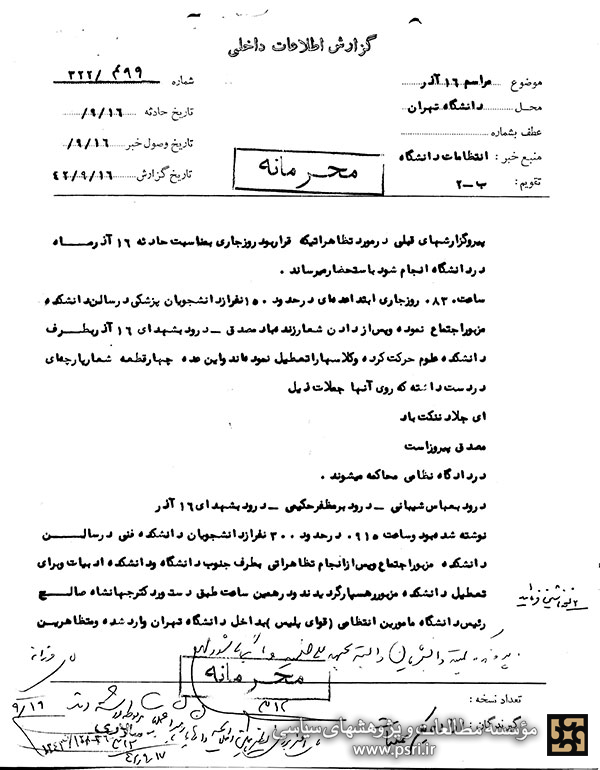 گزارش اطلاعات داخلی
موضوع مراسم ۱۶ آذر
محل دانشگاه تهران
عطف بشماره
منبع خبر : انتظامات دانشگاه
تقویم : ب-۲
شماره ۳۲۲/
تاریخ حادثه ۹/۱۶/
تاریخ وصول خبر ۹/۱۶/
تاریخ گزارش ۴۲/۹/۱۶
محرمانه
پیروگزارشهای قبلی درمورد تظاهراتیکه قراربود روزجاری بمناسبت حادثه ۱۶ آذرماه
دردانشگاه انجام شود باستحضار میرساند .
ساعت ۰۸۳۰ روزجاری ابتدا عده‌ای درحدود ۱۵۰ نفرازدانشجویان پزشکی درسالن دانشکده
مزبوراجتماع نموده وپس از دادن شعارزنده باد مصدق - درود بشهدای ۱۶ آذر بطرف
دانشکده علوم حرکت کرده وکلاسها راتعطیل نموده‌اند واین عده چهارقطعه شعارپارچه‌ای
دردست داشته که روی آنها جملات ذیل
ای جلاد ننگت باد
مصدق پیروزاست
دردادگاه نظامی محاکمه میشوند .
درود بعباس شیبانی - درود بر مظفرحکیمی - درود بشهدای ۱۶ آذر
نوشته شده بود وساعت ۰۹۱۵ درحدود ۳۰۰ نفرازدانشجویان دانشکده فنی درسالن
دانشکده مزبوراجتماع وپس ازانجام تظاهراتی بطرف جنوب دانشگاه ودانشکده ادبیات وبرای
تعطیل دانشکده مزبوررهسپارگردیدند ودرهمین ساعت طبق دستوردکترجهانشاه صالح
رئیس دانشگاه مامورین انتظامی (قوای پلیس) بداخل دانشگاه تهران وارد شده ومتظاهرین
محرمانه
تعداد نسخه :
۹/۱۶
مؤسسه مطالعات و پژوهشهای سیاسی
www.psri.ir